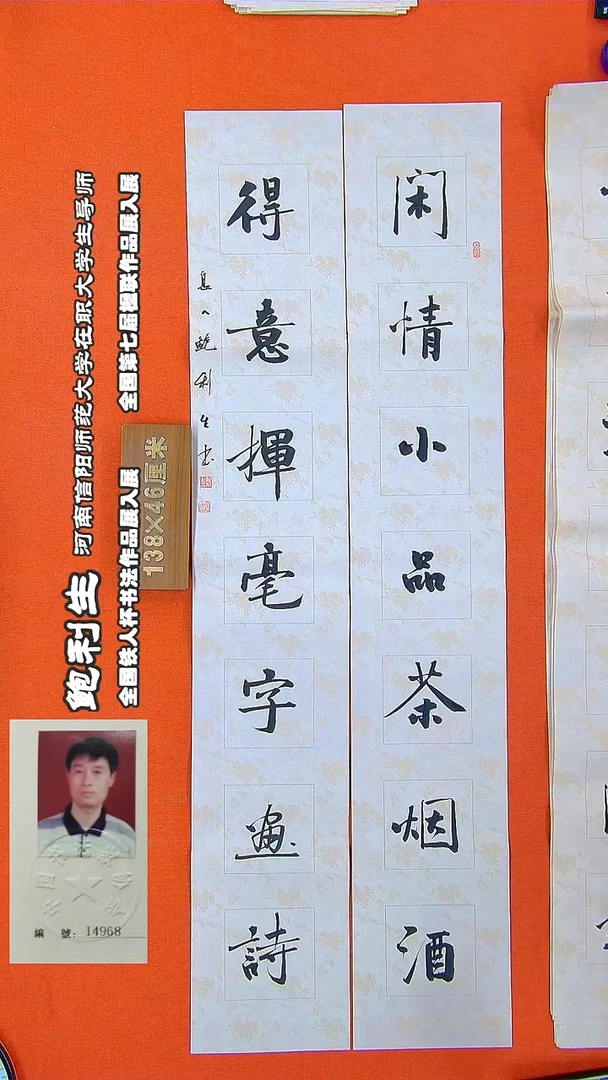 闲情小品茶烟酒
得意揮毫字画詩
鲍利生书
鲍利生
河南信阳师范大学在职大学生导师
全国铁人杯书法作品展入展
全国第七届楹联作品展入展
138×46厘米
編 號: 14968